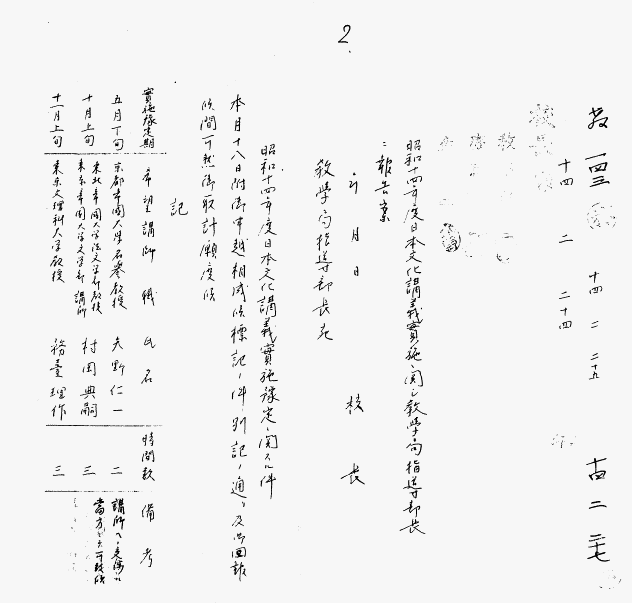 2
教 一四三
十四 二 二四
十四 二 二五
十四 二 二七
昭和十四年度日本文化講義實施ニ関シ教學局指導部長
ニ報告案
年 月 日
校 長
教學局指導部長宛
昭和十四年度日本文化講義實施豫定ニ関スル件
本月十八日附御申越相成候標記ノ件別記ノ通リ及御回報
候間可然御取計願度候
記
實施豫定期 希望講師 職 氏名 時間数 備考
五月下旬 京都帝國大學名誉教授 矢野仁一 二
十月上旬 東北帝國大学法文学部教授 東京帝國大学文学部講師 村岡典嗣 三
十一月上旬 東京文理科大学教授 務臺理作 三
講師ヘノ交渉ハ
当方ニテ可致候